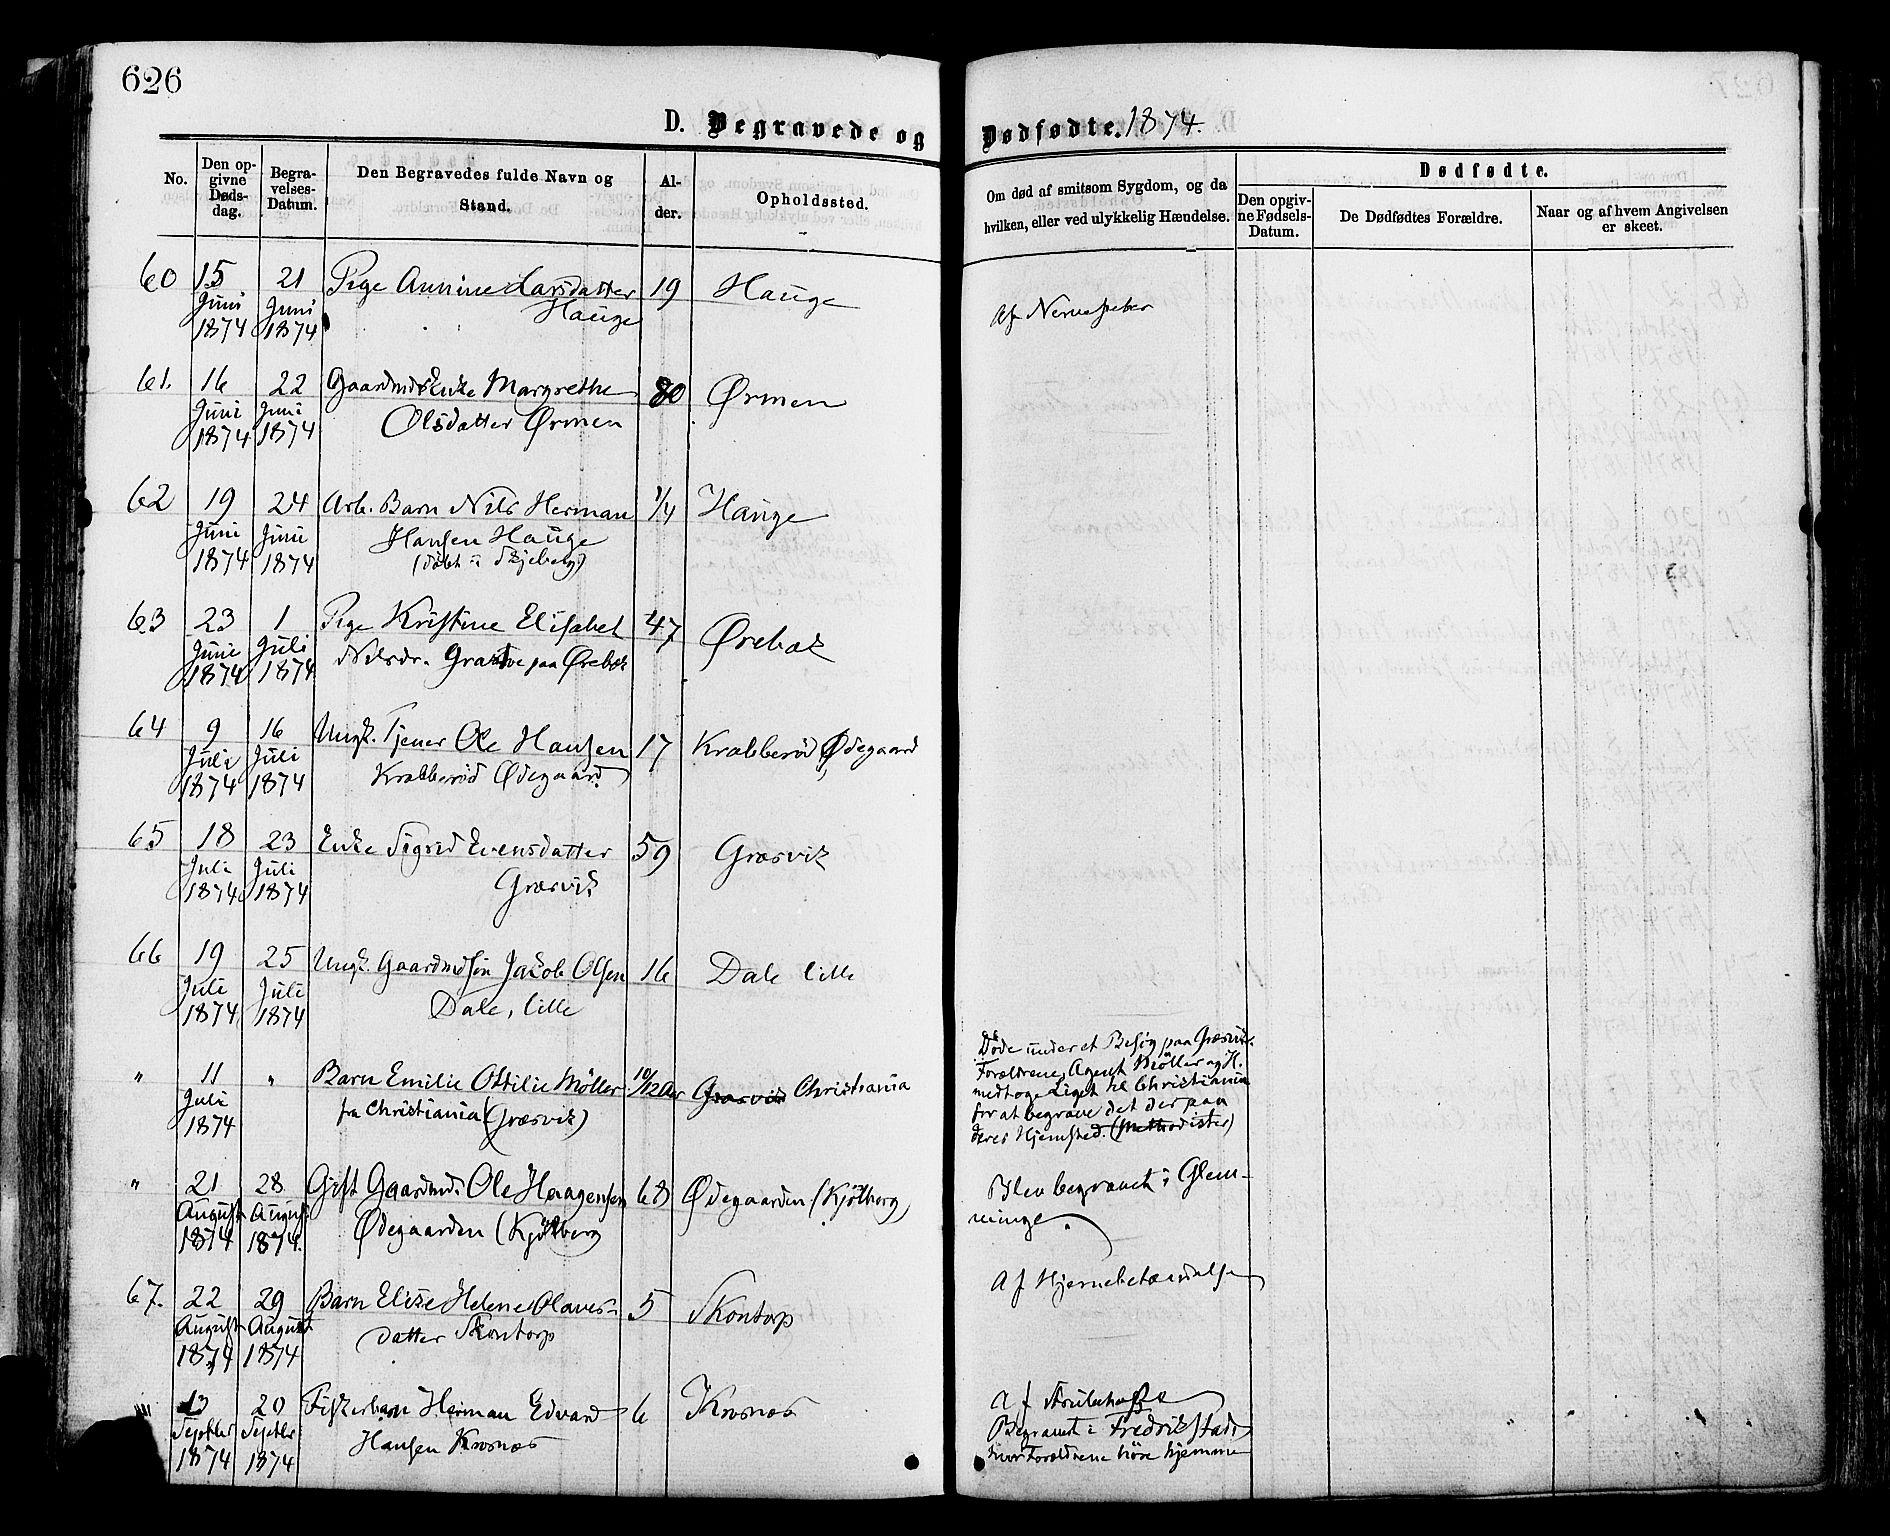 626
D. Begravede og Dødfødte. 1874.
No.
Den opgivne Dødsdag.
Begravelses-Datum.
Den Begravedes fulde Navn og Stand.
Alder.
Opholdssted.
Om død af smitsom Sygdom, og da hvilken, eller ved ulykkelig Hændelse.
Dødfødte.
Den opgivne Fødsels-Datum.
De Dødfødtes Forældre.
Naar og af hvem Angivelsen er skeet.
60 15 21 Pige Annine Larsdatter 19 Hauge
Juni Juni Hauge Af Nervefeber
1874 1874
61. 16 22 Gaardmds Enke Margrethe 80 Ørmen
Juni Juni Olsdatter Ørmen
1874 1874
62 19 24 Arb. Barn Nils Herman 1/4 Hauge
Juni Juni Hansen Hauge
1874 1874 (døbt i Skjeberg)
63 23 1 Pige Kristine Elisabet 47 Ørebæk
Juni Juli Nilsdr. paa Ørebæk
1874 1874
64 9 16 Ungk. Tjener Ole Hansen 17 Krabberød Ødegaard
Juli Juli Krabberød Ødegaard
1874 1874
65 18 23 Enke Sigrid Evensdatter 59 Græsvik
Juli Juli Græsvik
1874 1874
66 19 25 Ungk. Gaardmdsøn Jakob Olsen 16 Dale lille
Juli Juli Dale, lille
1874 1874
" 11 " Barn Emilie Ottilie Møller 10/12 Aar Græsvik Christiania
Juli fra Christiania (Græsvik)
1874
Døde under et Besøg paa Græsvik.
Forældrene, Agent Møller og H.
medtoge Liget til Christiania
for at begrave det der paa
deres Hjemsted. (Methodister)
" 21 28 Gift Gaardmd. Ole Haagensen 68 Ødegaarden (Kjølberg)
August August Ødegaarden (Kjølberg
1874 1874.
Blev begravet i Glemminge.
67. 22 29 Barn Elise Helene Olavesdatter Skontorp 5 Skontorp
August August
1874 1874
Af Hjernebetændelse
13 20 Fiskerbarn Herman Edvard 6 Krosnæs
Septbr Septbr Hansen Krosnæs
1874 1874
Af Strubehoste
Begravet i Fredrikstad
hvor Forældrene høre hjemme